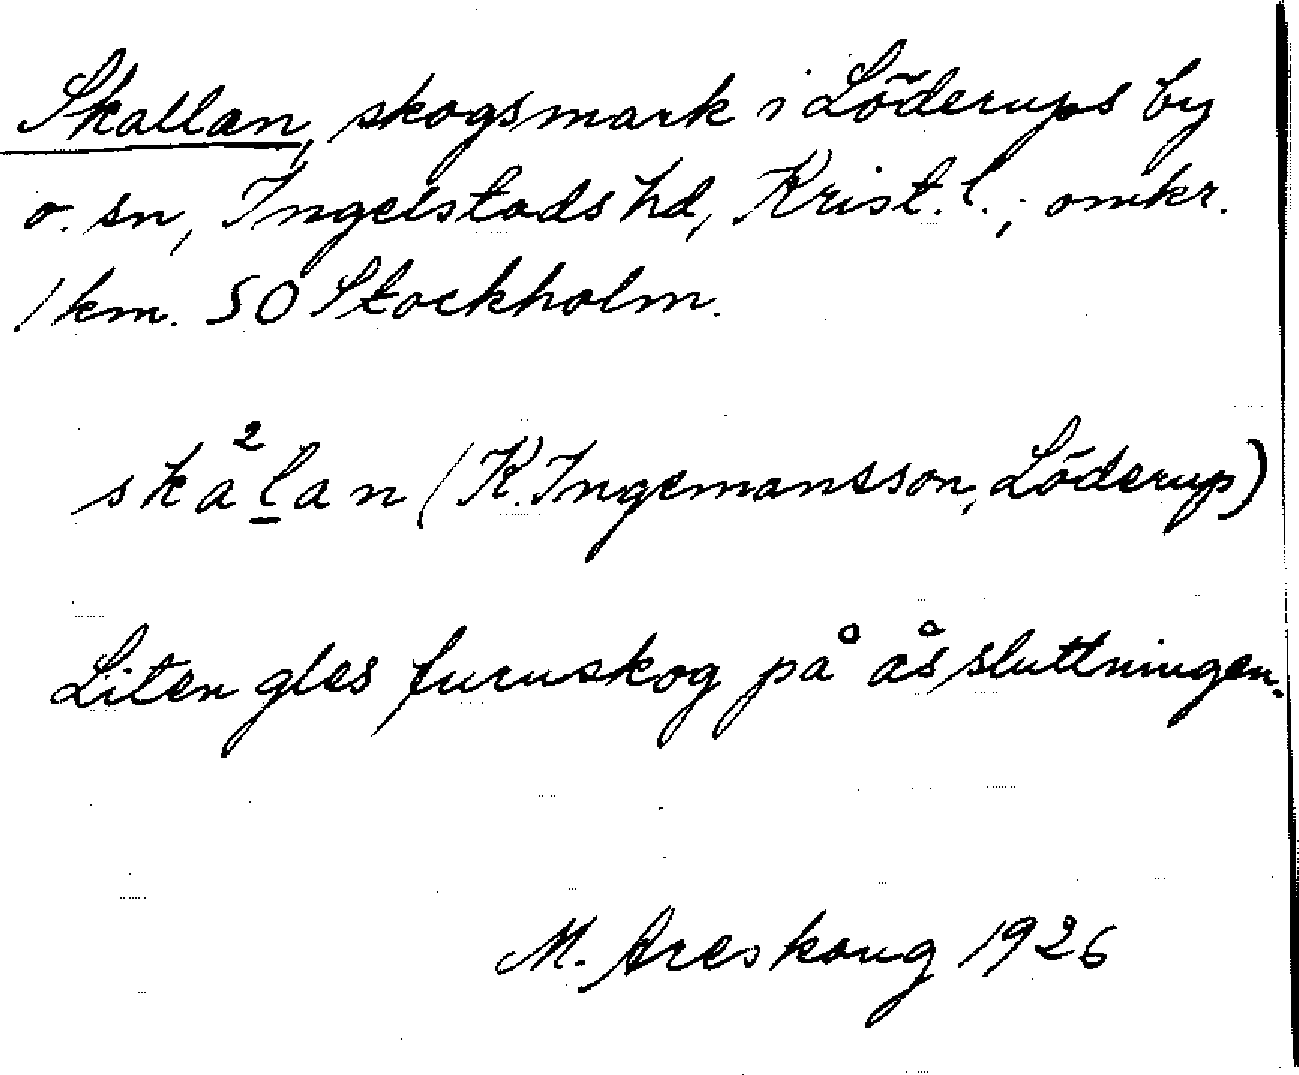 Skallan, skogsmark i Löderups by
o. sn, Ingelstads hd, Krist. l.; omkr.
1 km. SO Stockholm.
ska²l̲an (K. Ingemansson, Löderup)
Liten gles furuskog på åssluttningen.
M. Areskoug 1926